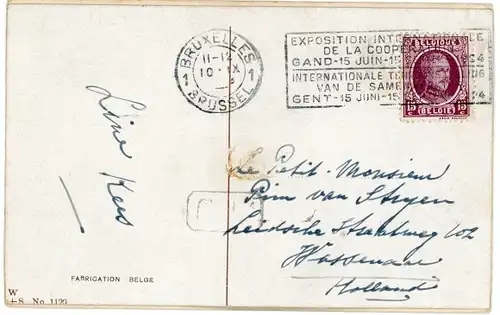 BRUXELLES
11-12
1 10 IX 1
BRUSSEL
EXPOSITION INTERNATIONALE
DE LA COOP
GAND-15 JUIN-15 24
INTERNATIONALE TE
VAN DE SAME
GENT-15 JUNI-15 24
BELGIQUE
15 BELGIË 15
Line Kees
Le Petit Monsieur
Pim van Stryen
Leidsche Straatweg 102
Wassenaar
Holland
FABRICATION BELGE
W
+S. No 1129